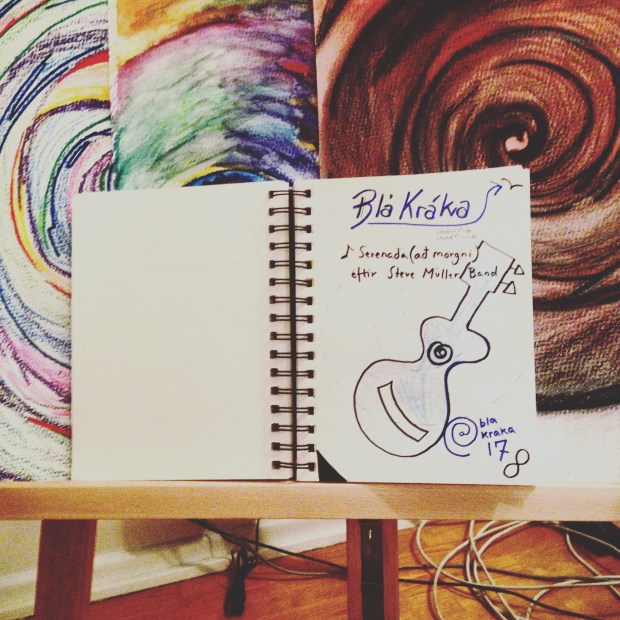 Blå Kråkva
♪ Serenada (að morgni)
eftir Steve Müller Band
@ bla
kraka
17
8